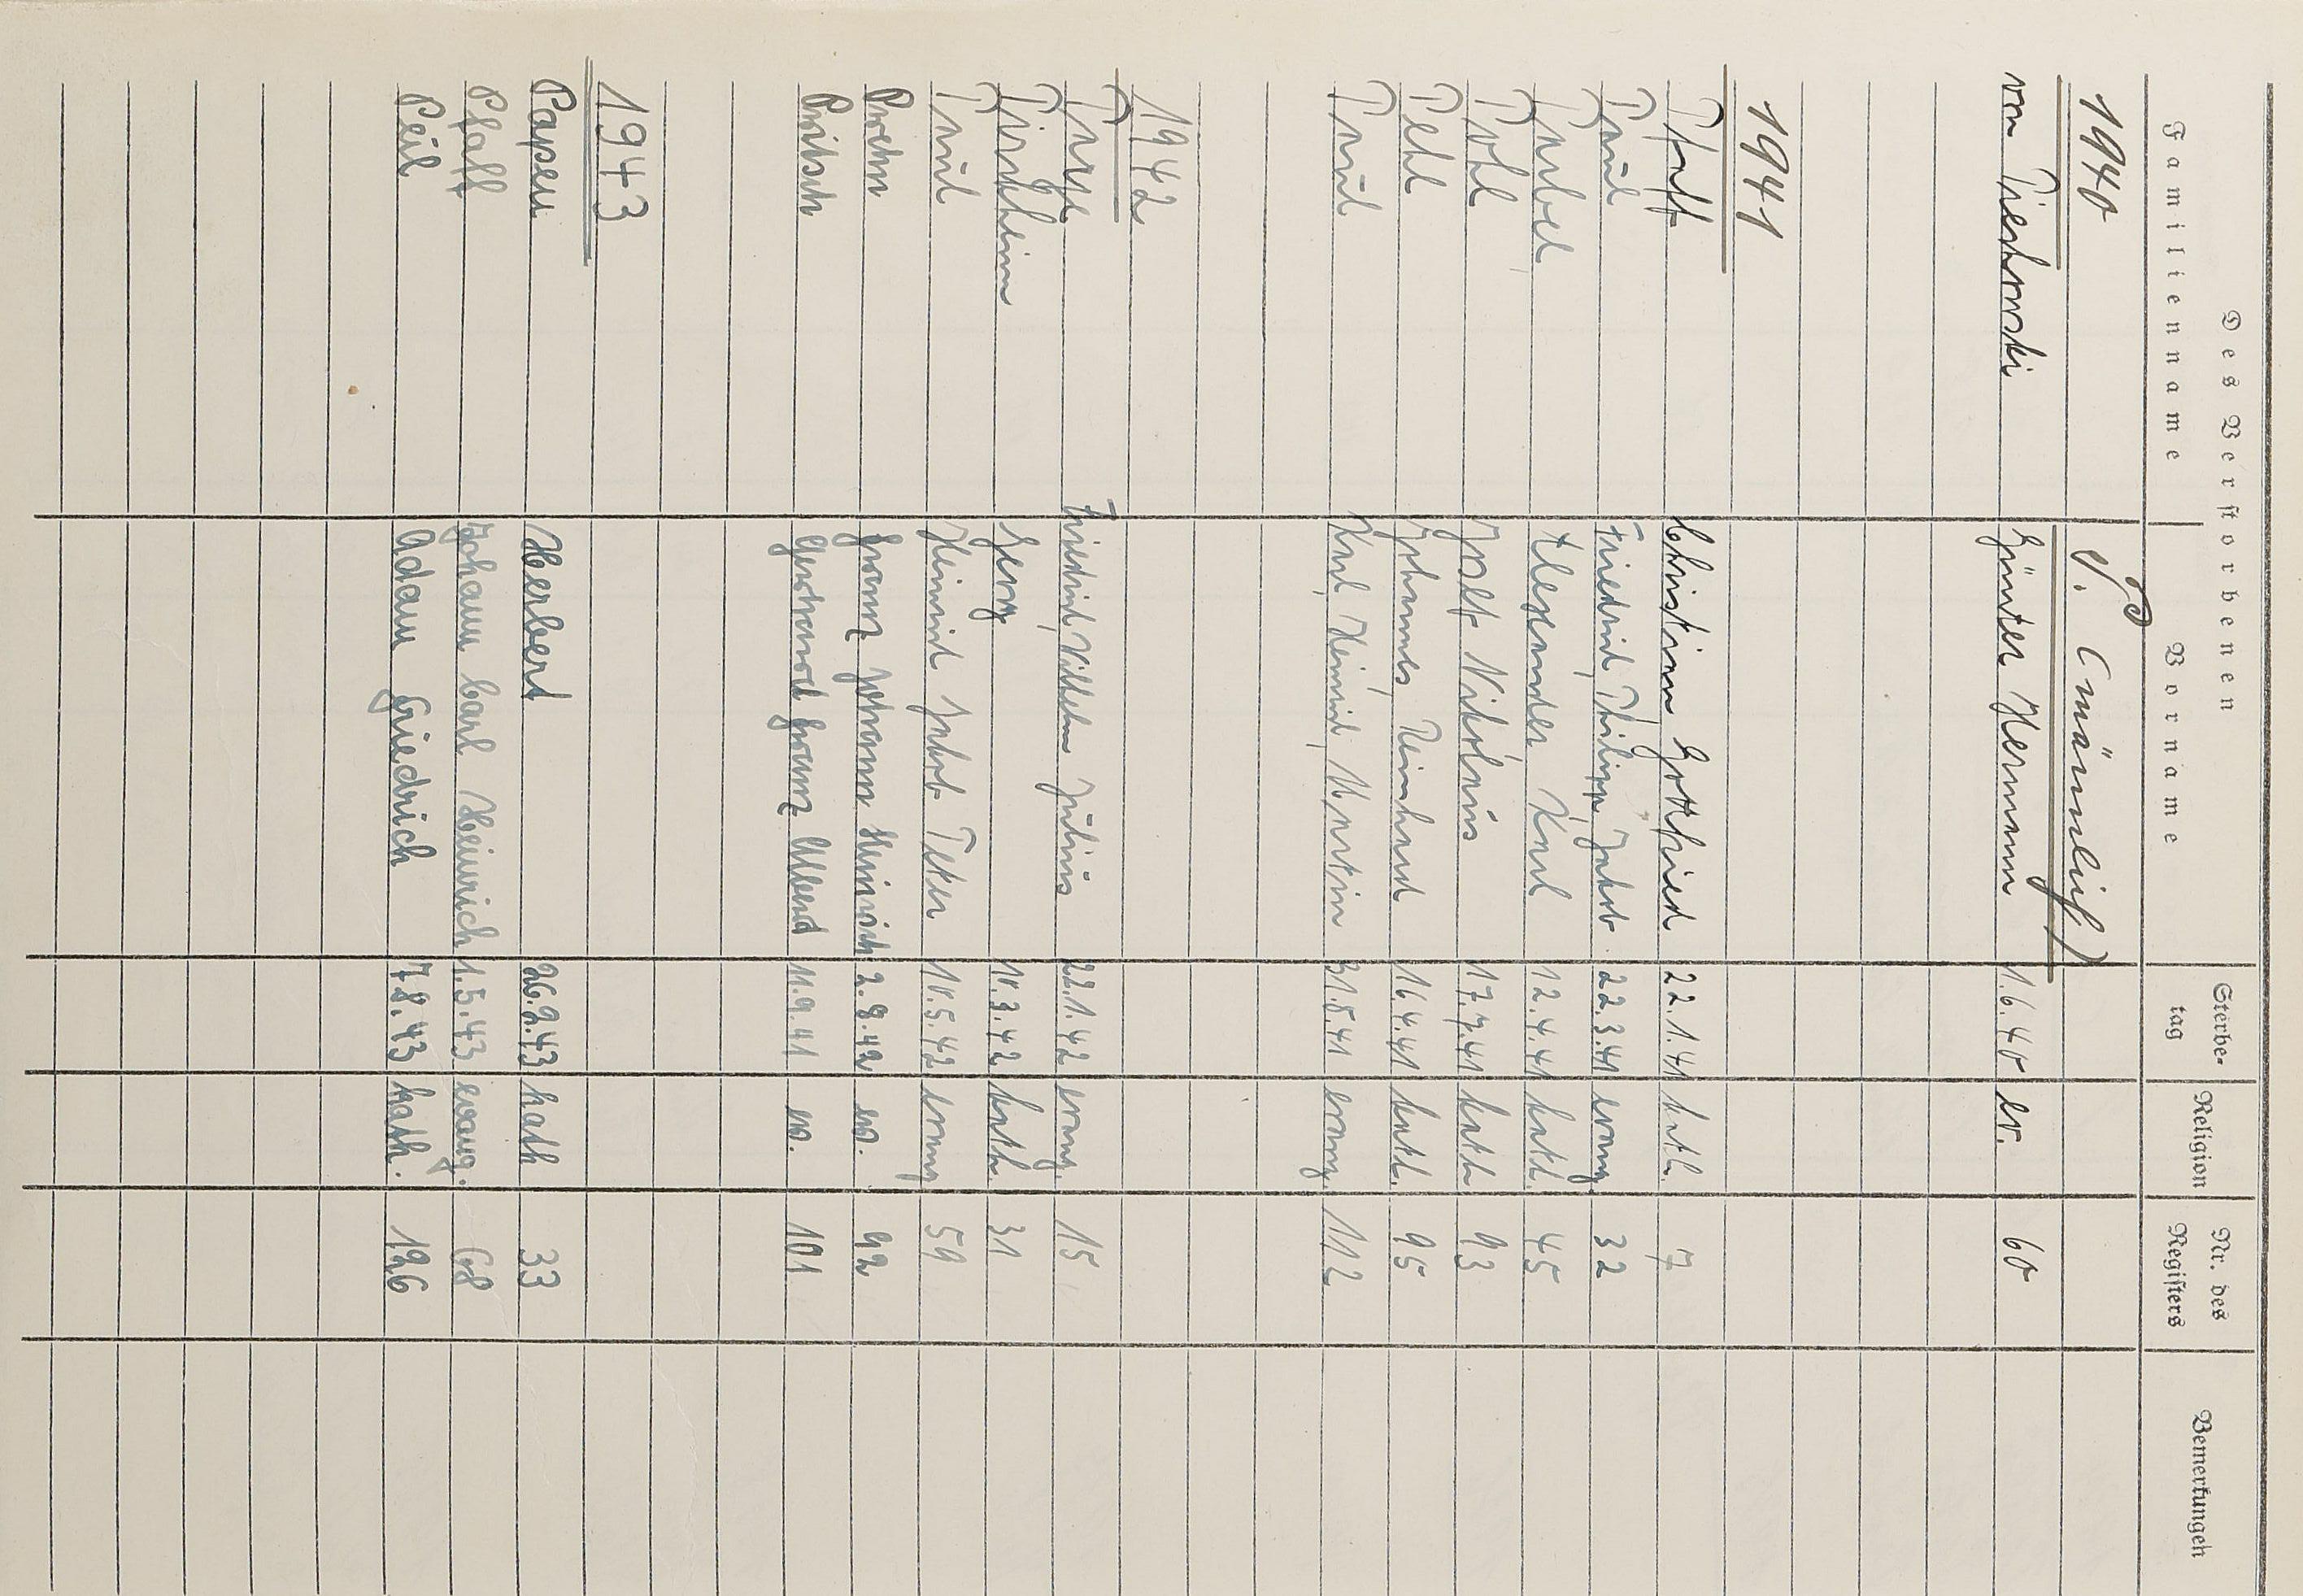 Des Verstorbenen
Familienname Vorname Sterbe- tag Religion Nr. des Registers Bemerkungen
1940 P. (männlich)
von Günter Hermann 1.6.40 ev. 60
1941
Pfaff Christian Gottfried 22.1.41 kath. 7
Paul Friedrich Philipp Jakob 22.3.41 evang. 32
Alexander Karl 12.4.41 kath. 45
Pohl Josef Nikolaus 17.7.41 kath 93
Pehl Johannes Reinhard 16.4.41 kath. 95
Paul Karl Heinrich Martin 31.8.41 evang. 112
1942
Friedrich Wilhelm Julius 22.1.42 evang. 15
Georg 10.3.42 kath. 31
Paul Heinrich Jakob Peter 10.5.42 evang 59
Prehn Franz Johann Heinrich 2.8.42 ev. 92
Pritsch Gerhard Franz Albend 11.9.41 ev. 101
1943
Papen Herbert 26.2.43 kath 33
Pfaff Johann Carl Heinrich 1.5.43 evang. 68
Peil Adam Friedrich 7.8.43 kath. 126